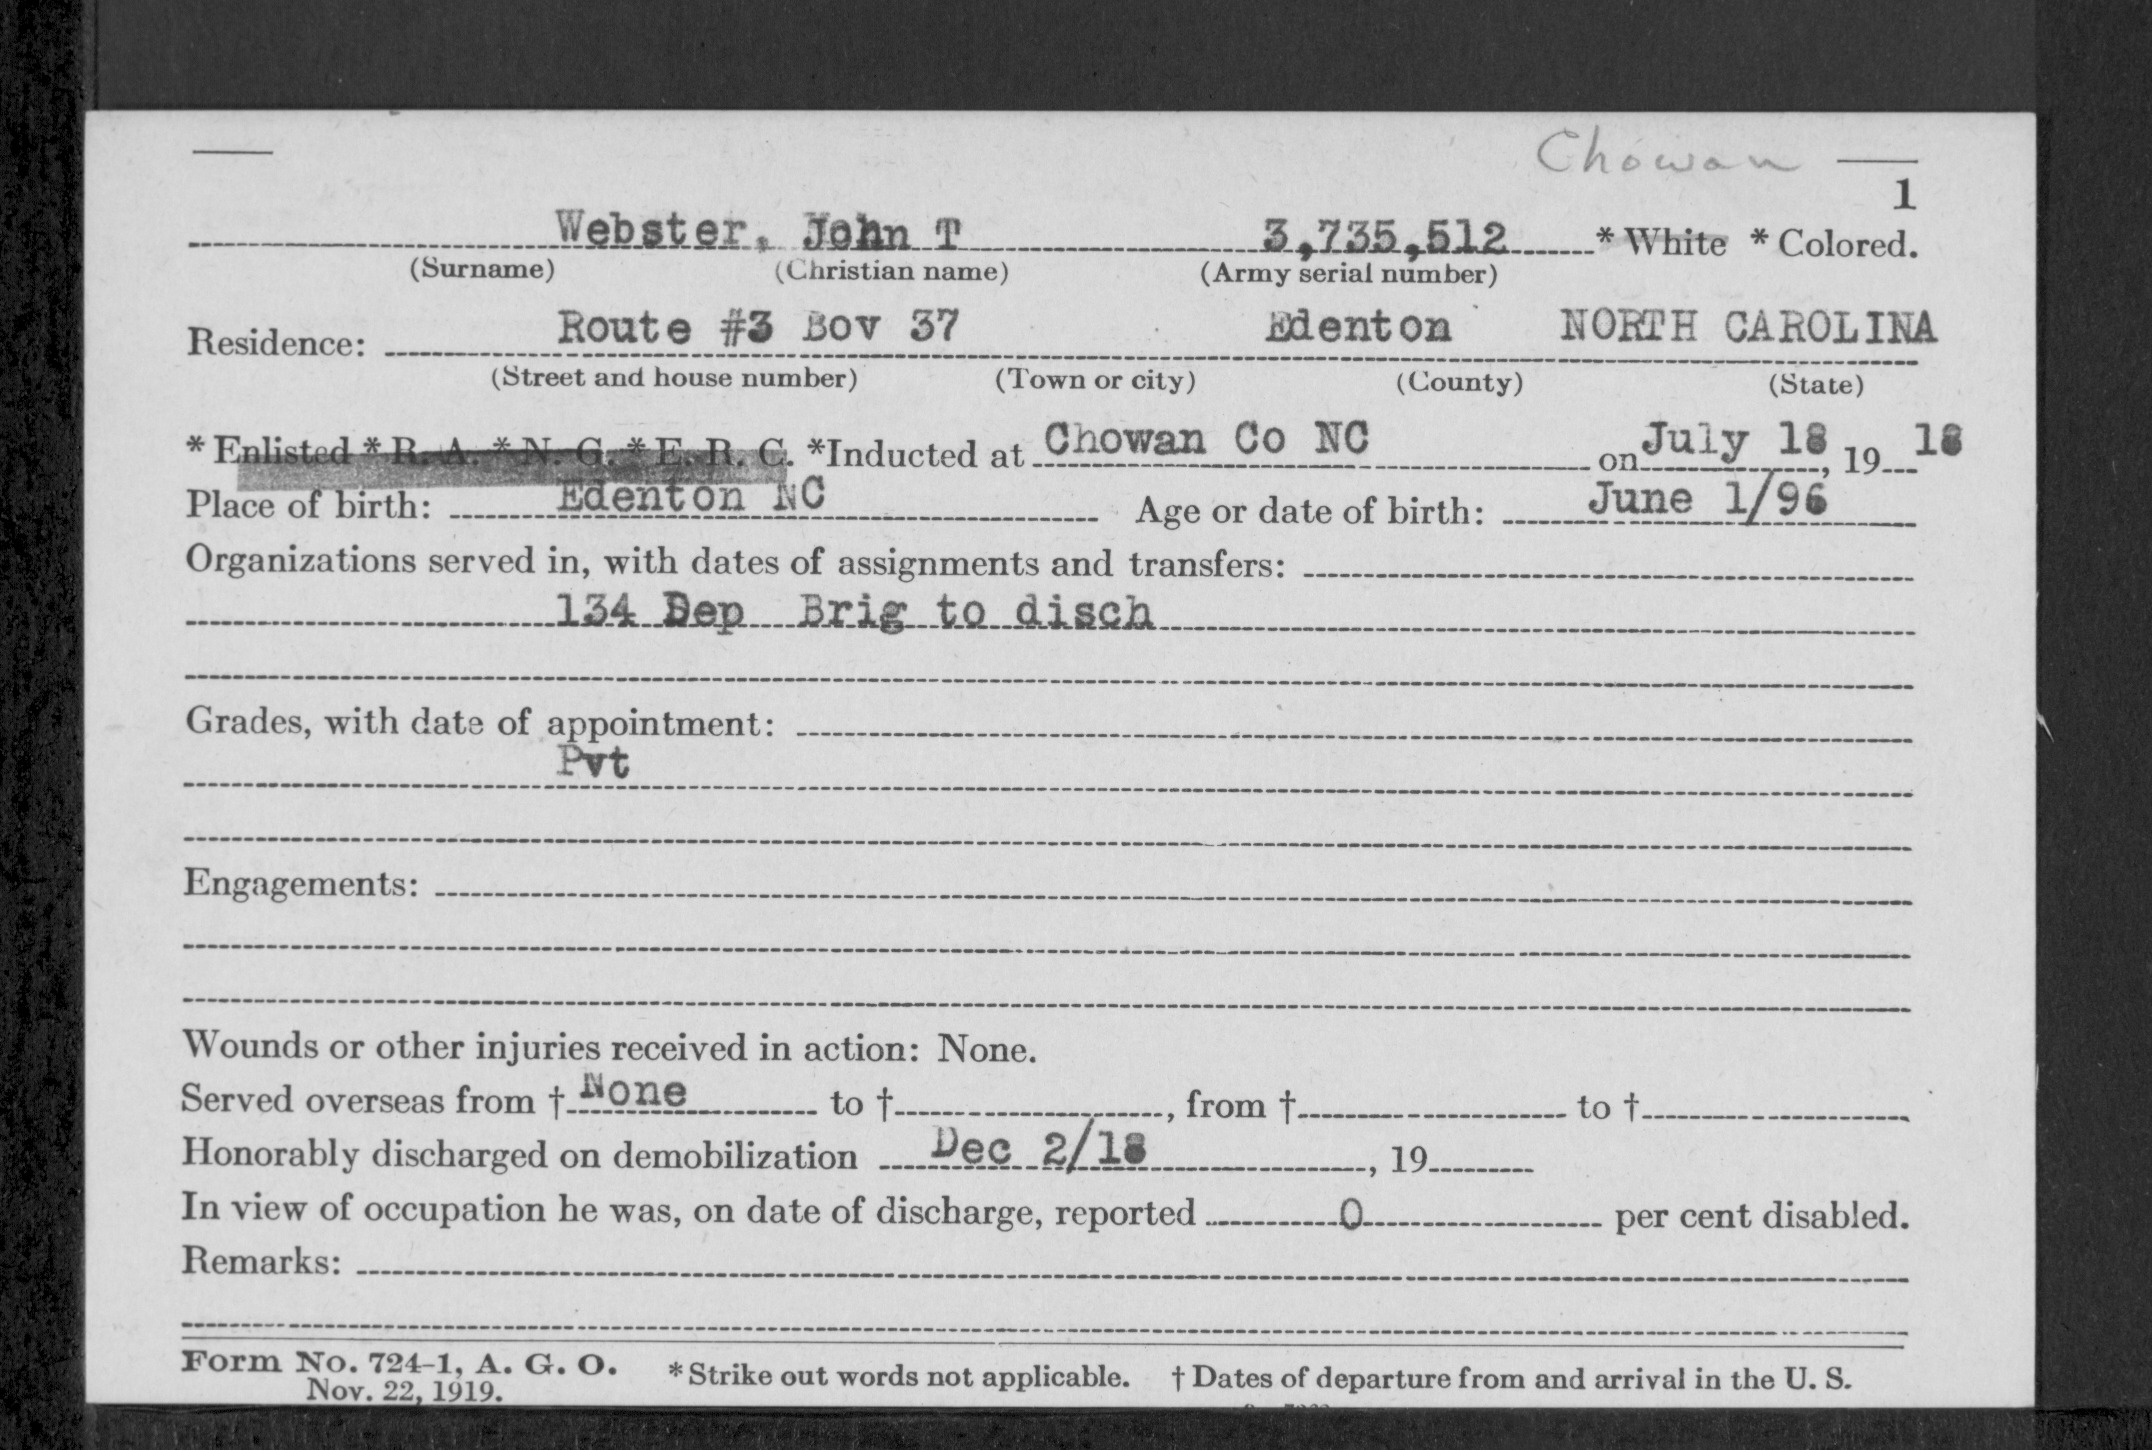 Chowan
1
Webster, John T 3,735,512 * White * Colored.
(Surname) (Christian name) (Army serial number)
Residence: Route #3 Bov 37 Edenton NORTH CAROLINA
(Street and house number) (Town or city) (County) (State)
* Enlisted * R. A. * N. G. * E. R. C. *Inducted at Chowan Co NC on July 18, 19 18
Place of birth: Edenton NC Age or date of birth: June 1/96
Organizations served in, with dates of assignments and transfers:
134 Dep Brig to disch
Grades, with date of appointment:
Pvt
Engagements:
Wounds or other injuries received in action: None.
Served overseas from † None to †, from † to †
Honorably discharged on demobilization Dec 2/18, 19
In view of occupation he was, on date of discharge, reported 0 per cent disabled.
Remarks:
Form No. 724-1, A. G. O. * Strike out words not applicable. † Dates of departure from and arrival in the U. S.
Nov. 22, 1919.